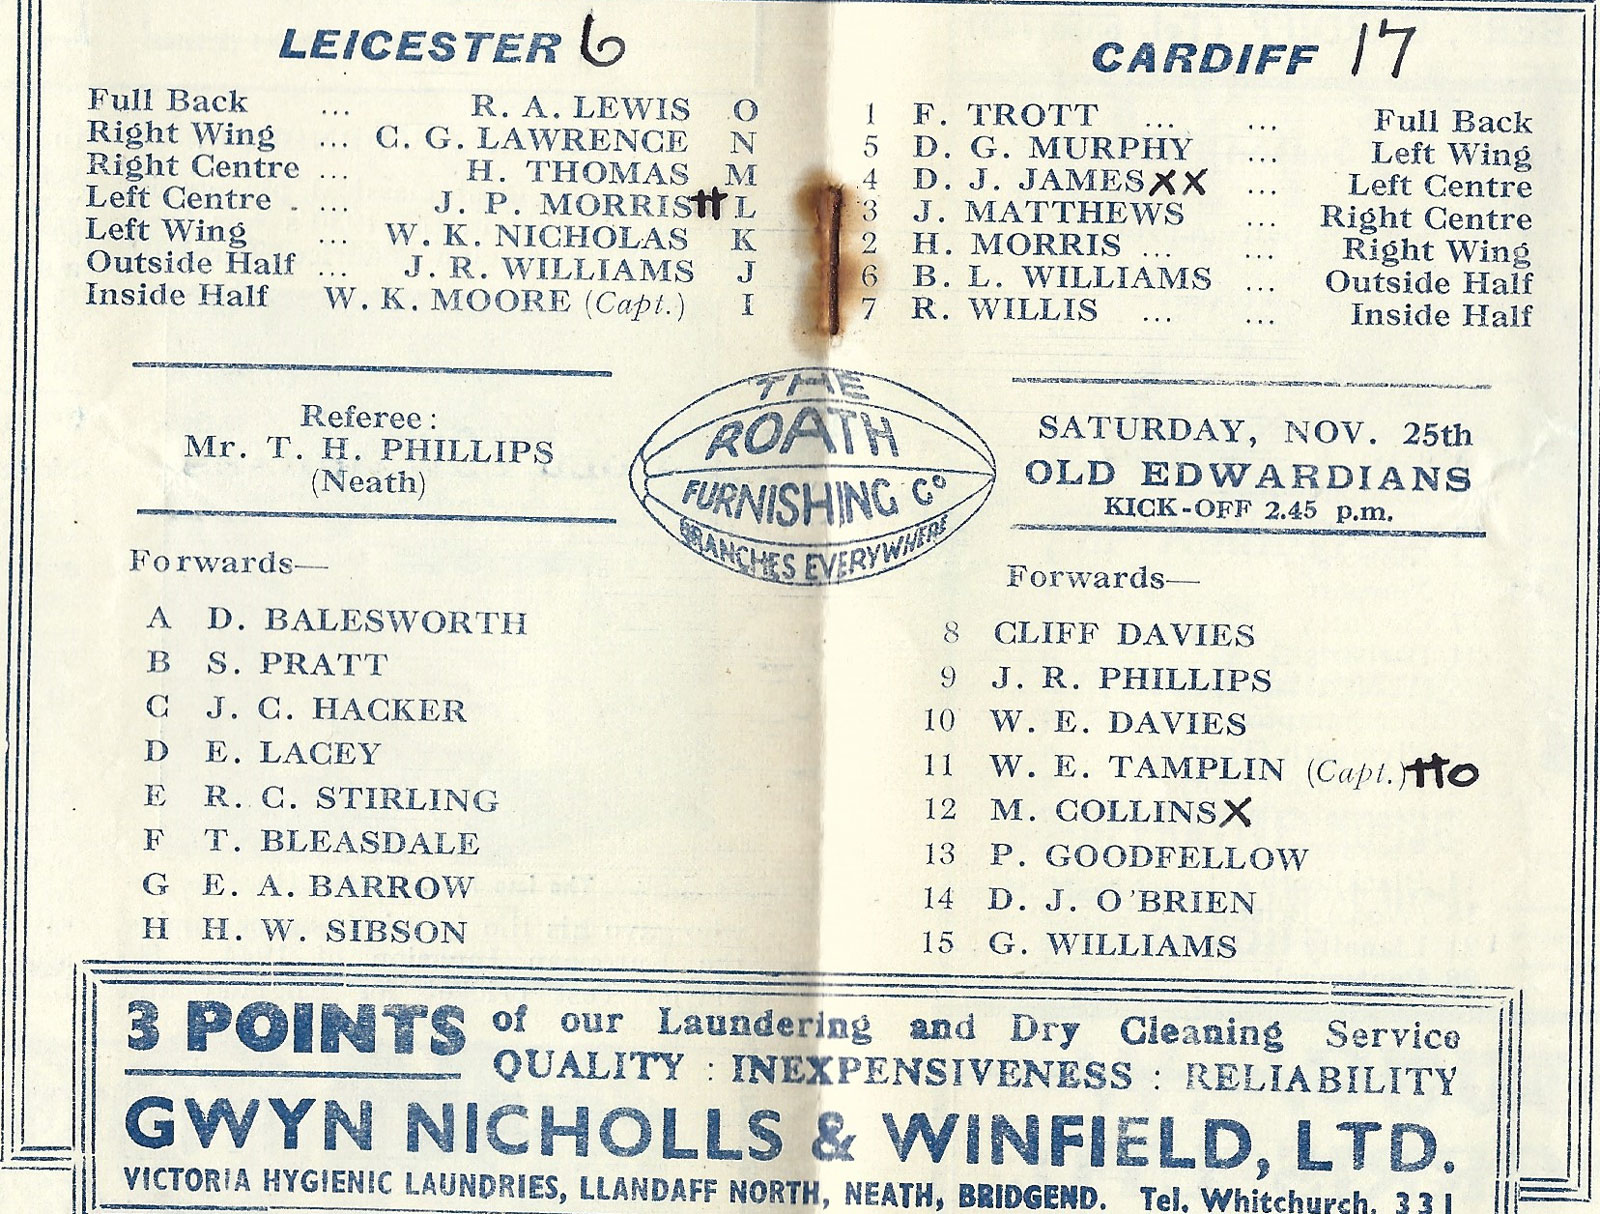 LEICESTER 6
Full Back ... R. A. LEWIS O
Right Wing ... C. G. LAWRENCE N
Right Centre ... H. THOMAS M
Left Centre ... J. P. MORRIS tt L
Left Wing ... W. K. NICHOLAS K
Outside Half ... J. R. WILLIAMS J
Inside Half W. K. MOORE (Capt.) I
CARDIFF 17
1 F. TROTT ... ... Full Back
5 D. G. MURPHY ... Left Wing
4 D. J. JAMES XX ... Left Centre
3 J. MATTHEWS ... Right Centre
2 H. MORRIS ... ... Right Wing
6 B. L. WILLIAMS ... Outside Half
7 R. WILLIS ... ... Inside Half
Referee:
Mr. T. H. PHILLIPS
(Neath)
THE
ROATH
FURNISHING Co
BRANCHES EVERYWHERE
SATURDAY, NOV. 25th
OLD EDWARDIANS
KICK-OFF 2.45 p.m.
Forwards—
A D. BALESWORTH
B S. PRATT
C J. C. HACKER
D E. LACEY
E R. C. STIRLING
F T. BLEASDALE
G E. A. BARROW
H H. W. SIBSON
Forwards—
8 CLIFF DAVIES
9 J. R. PHILLIPS
10 W. E. DAVIES
11 W. E. TAMPLIN (Capt.) tto
12 M. COLLINS X
13 P. GOODFELLOW
14 D. J. O'BRIEN
15 G. WILLIAMS
3 POINTS of our Laundering and Dry Cleaning Service
QUALITY : INEXPENSIVENESS : RELIABILITY
GWYN NICHOLLS & WINFIELD, LTD.
VICTORIA HYGIENIC LAUNDRIES, LLANDAFF NORTH, NEATH, BRIDGEND. Tel. Whitchurch. 331